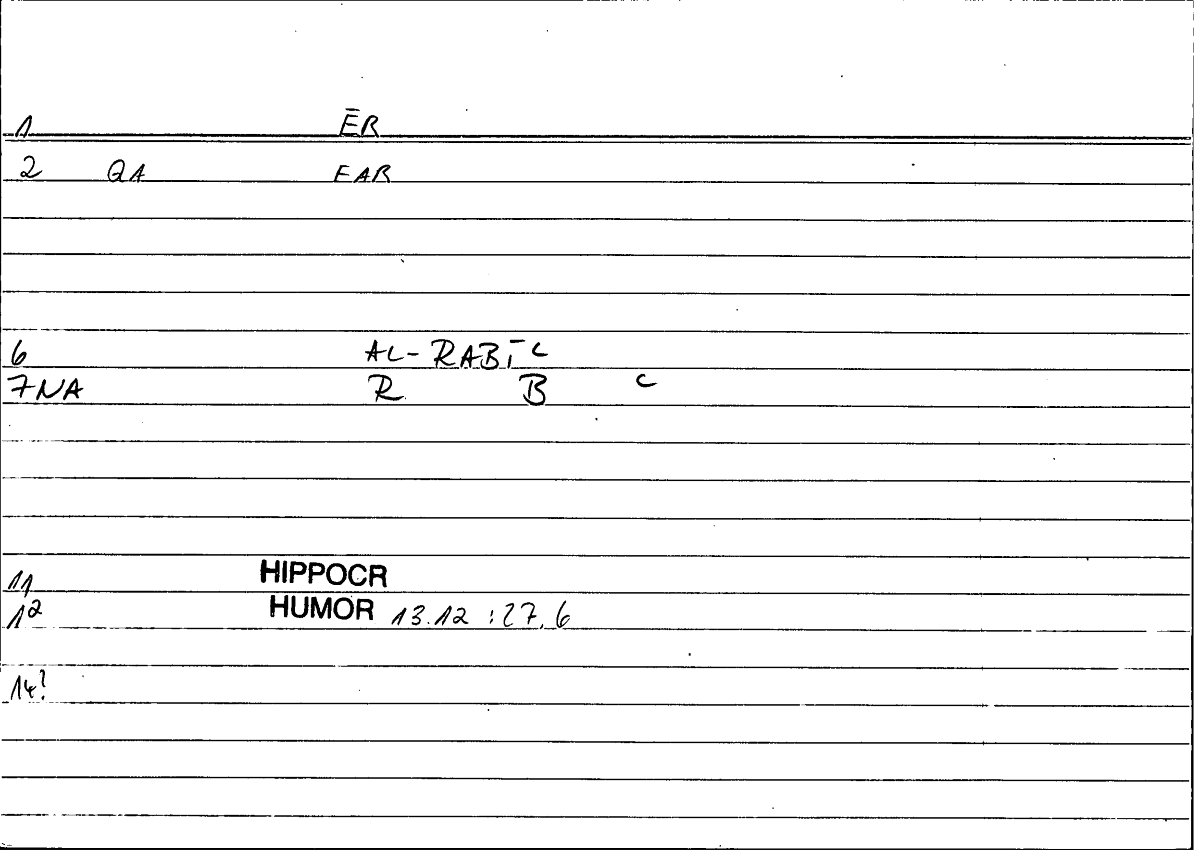 1 ĒR
2 QA EAR
6 AL-RABĪC
7NA R B C
11 HIPPOCR
12 HUMOR 13.12 :27.6
14?